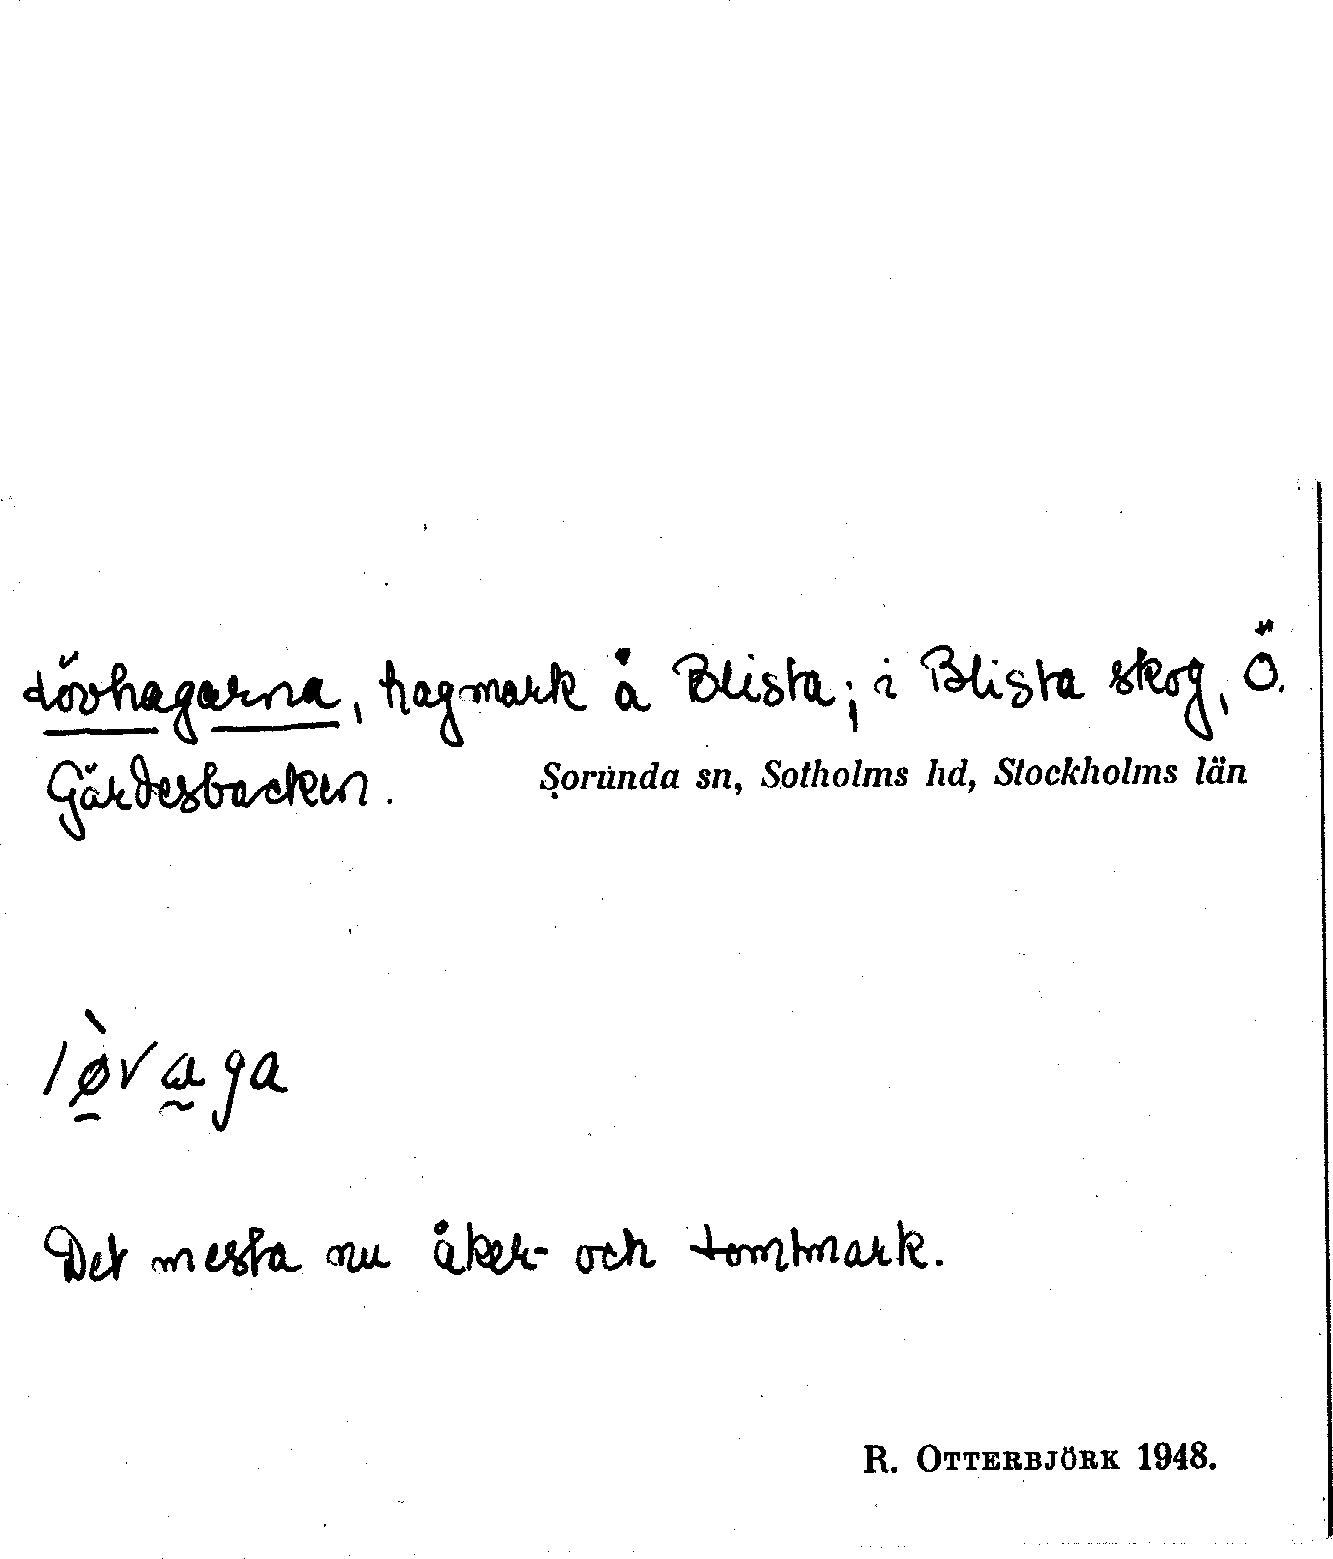 Lövhagarna, hagmark å Blista; i Blista skog, Ö.
Gärdesbacken. Sorunda sn, Sotholms hd, Stockholms län
lø̀vaga
Det mesta nu åker- och tomtmark.
R. OTTERBJÖRK 1948.